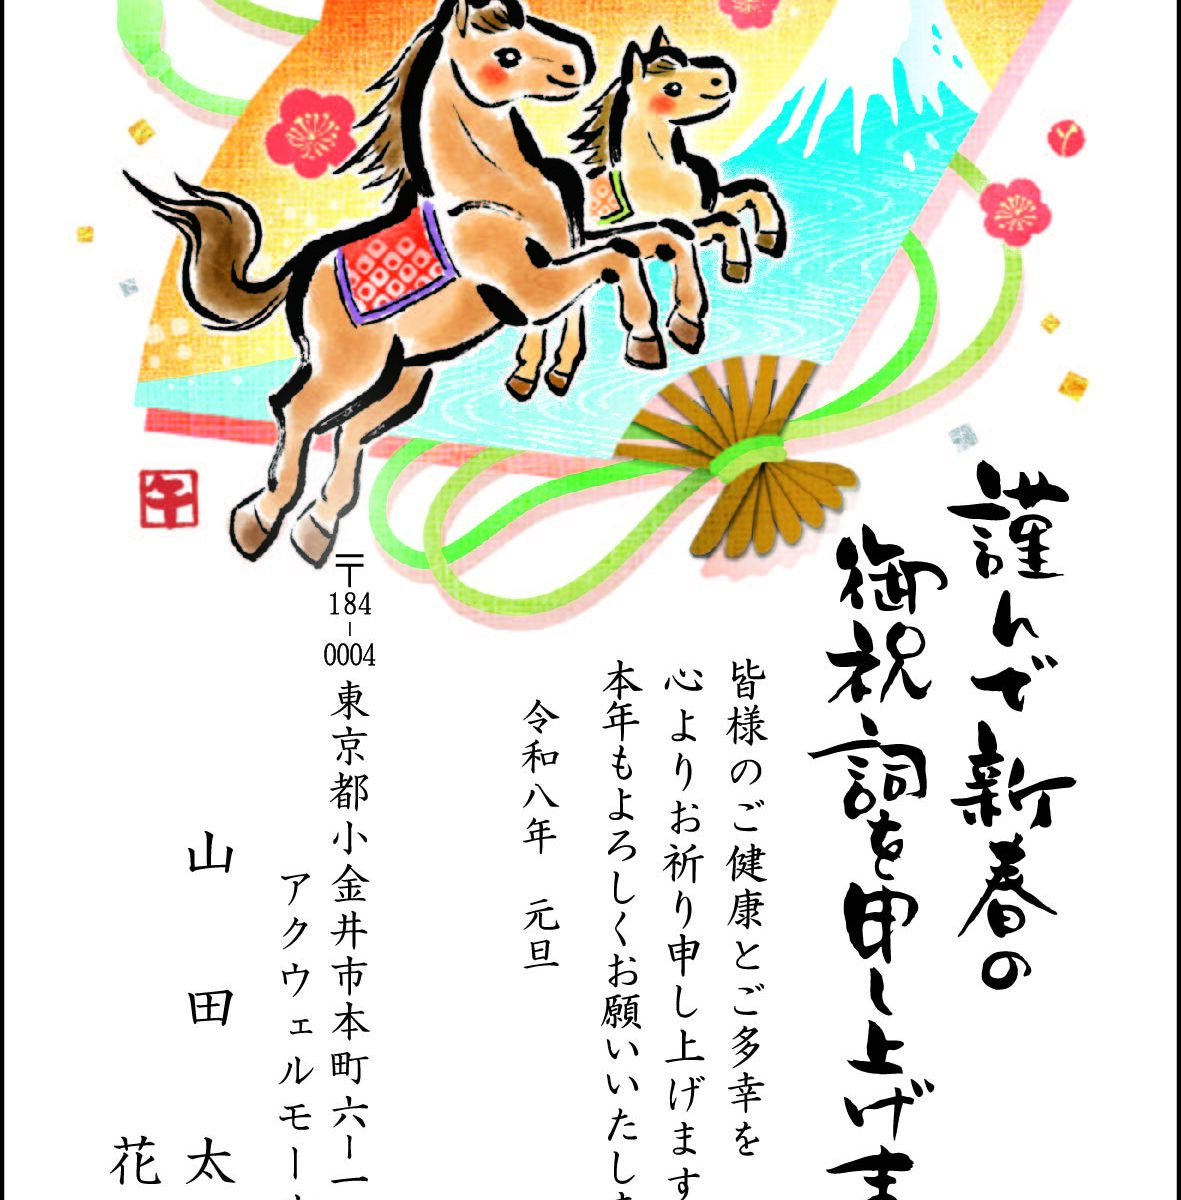 謹んで新春の
御祝詞を申し上げま
皆様のご健康とご多幸を
心よりお祈り申し上げます
本年もよろしくお願いいたしま
令和八年 元旦
〒184-0004 東京都小金井市本町六ー一
アクウェルモー
山田 太
花
午